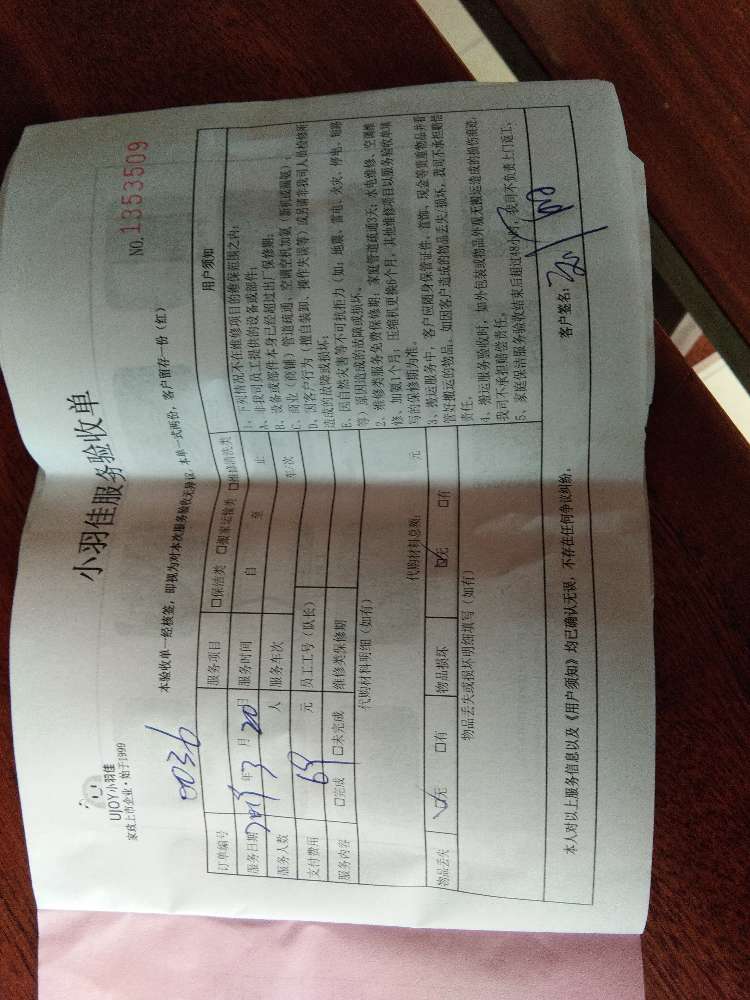 UJOY小羽佳
家政上市企业·始于1999
小羽佳服务验收单
NO. 1353509
0036
本验收单一经核签，即视为对本次服务验收无异议。本单一式两份，客户留存一份（红）
订单编号 服务项目 □保洁类 □搬家运输类 □维修清洗类
服务日期 年 3 月 20 日 服务时间 自 至 止
服务人数 人 服务车次 车/次
支付费用 69 元 员工工号（队长）
服务内容 □完成 □未完成 维修类保修期
代购材料明细（如有）
代购材料总额： 元
物品丢失 □无 □有 物品损坏 □无 □有
物品丢失或损坏明细填写（如有）
用户须知
1、下列情况不在维修项目的维保范围之内：
A、非我司员工提供的设备或部件；
B、设备或部件本身已经超过出厂保修期；
C、商业（商铺）管道疏通、空调空机加氨（新机或漏氨）；
D、因客户行为（擅自装卸、操作失误等）或另请非我司人员检修所
造成的故障或损坏；
E、因自然灾害等不可抗拒力（如：地震、雷电、火灾、停电、短路
等）原因造成的故障或损坏。
2、维修类服务免费保修期，家庭管道疏通3天；水电维修、空调维
修、加氨1个月；压缩机更换6个月，其他维修项目以服务验收单填
写的保修期为准。
3、搬运服务中，客户应随身保管证件、首饰、现金等贵重物品并看
管好搬运的物品。如因客户造成的物品丢失/损坏，我司不承担赔偿
责任。
4、搬运服务验收时，如外包装或物品外观无搬运造成的损伤痕迹，
我司不承担赔偿责任。
5、家庭保洁服务验收结束后超过48小时，我司不负责上门返工。
本人对以上服务信息以及《用户须知》均已确认无误，不存在任何争议纠纷。
客户签名：